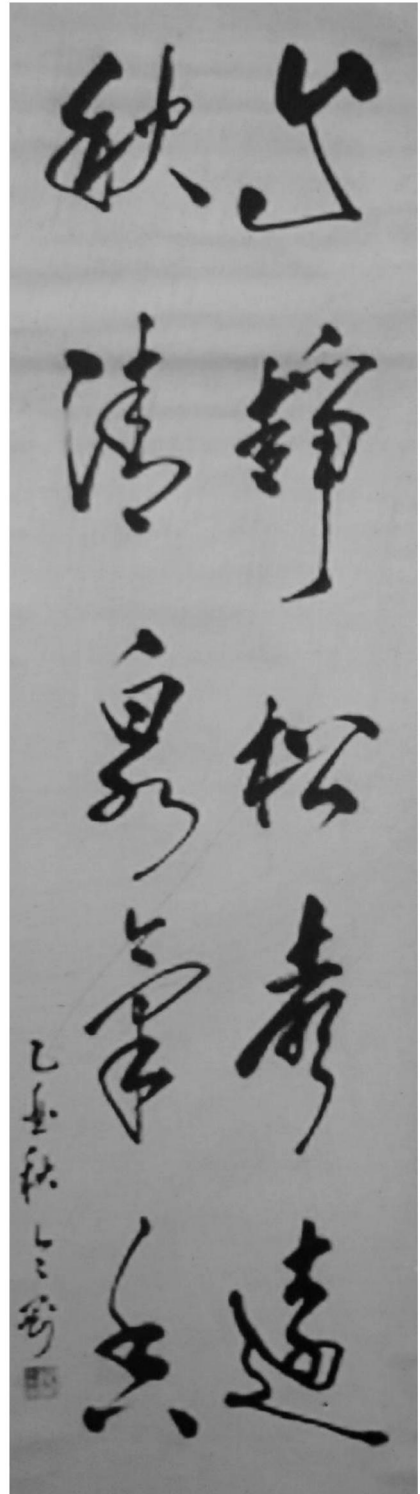 山靜松聲遠
秋清泉氣香
乙丑秋